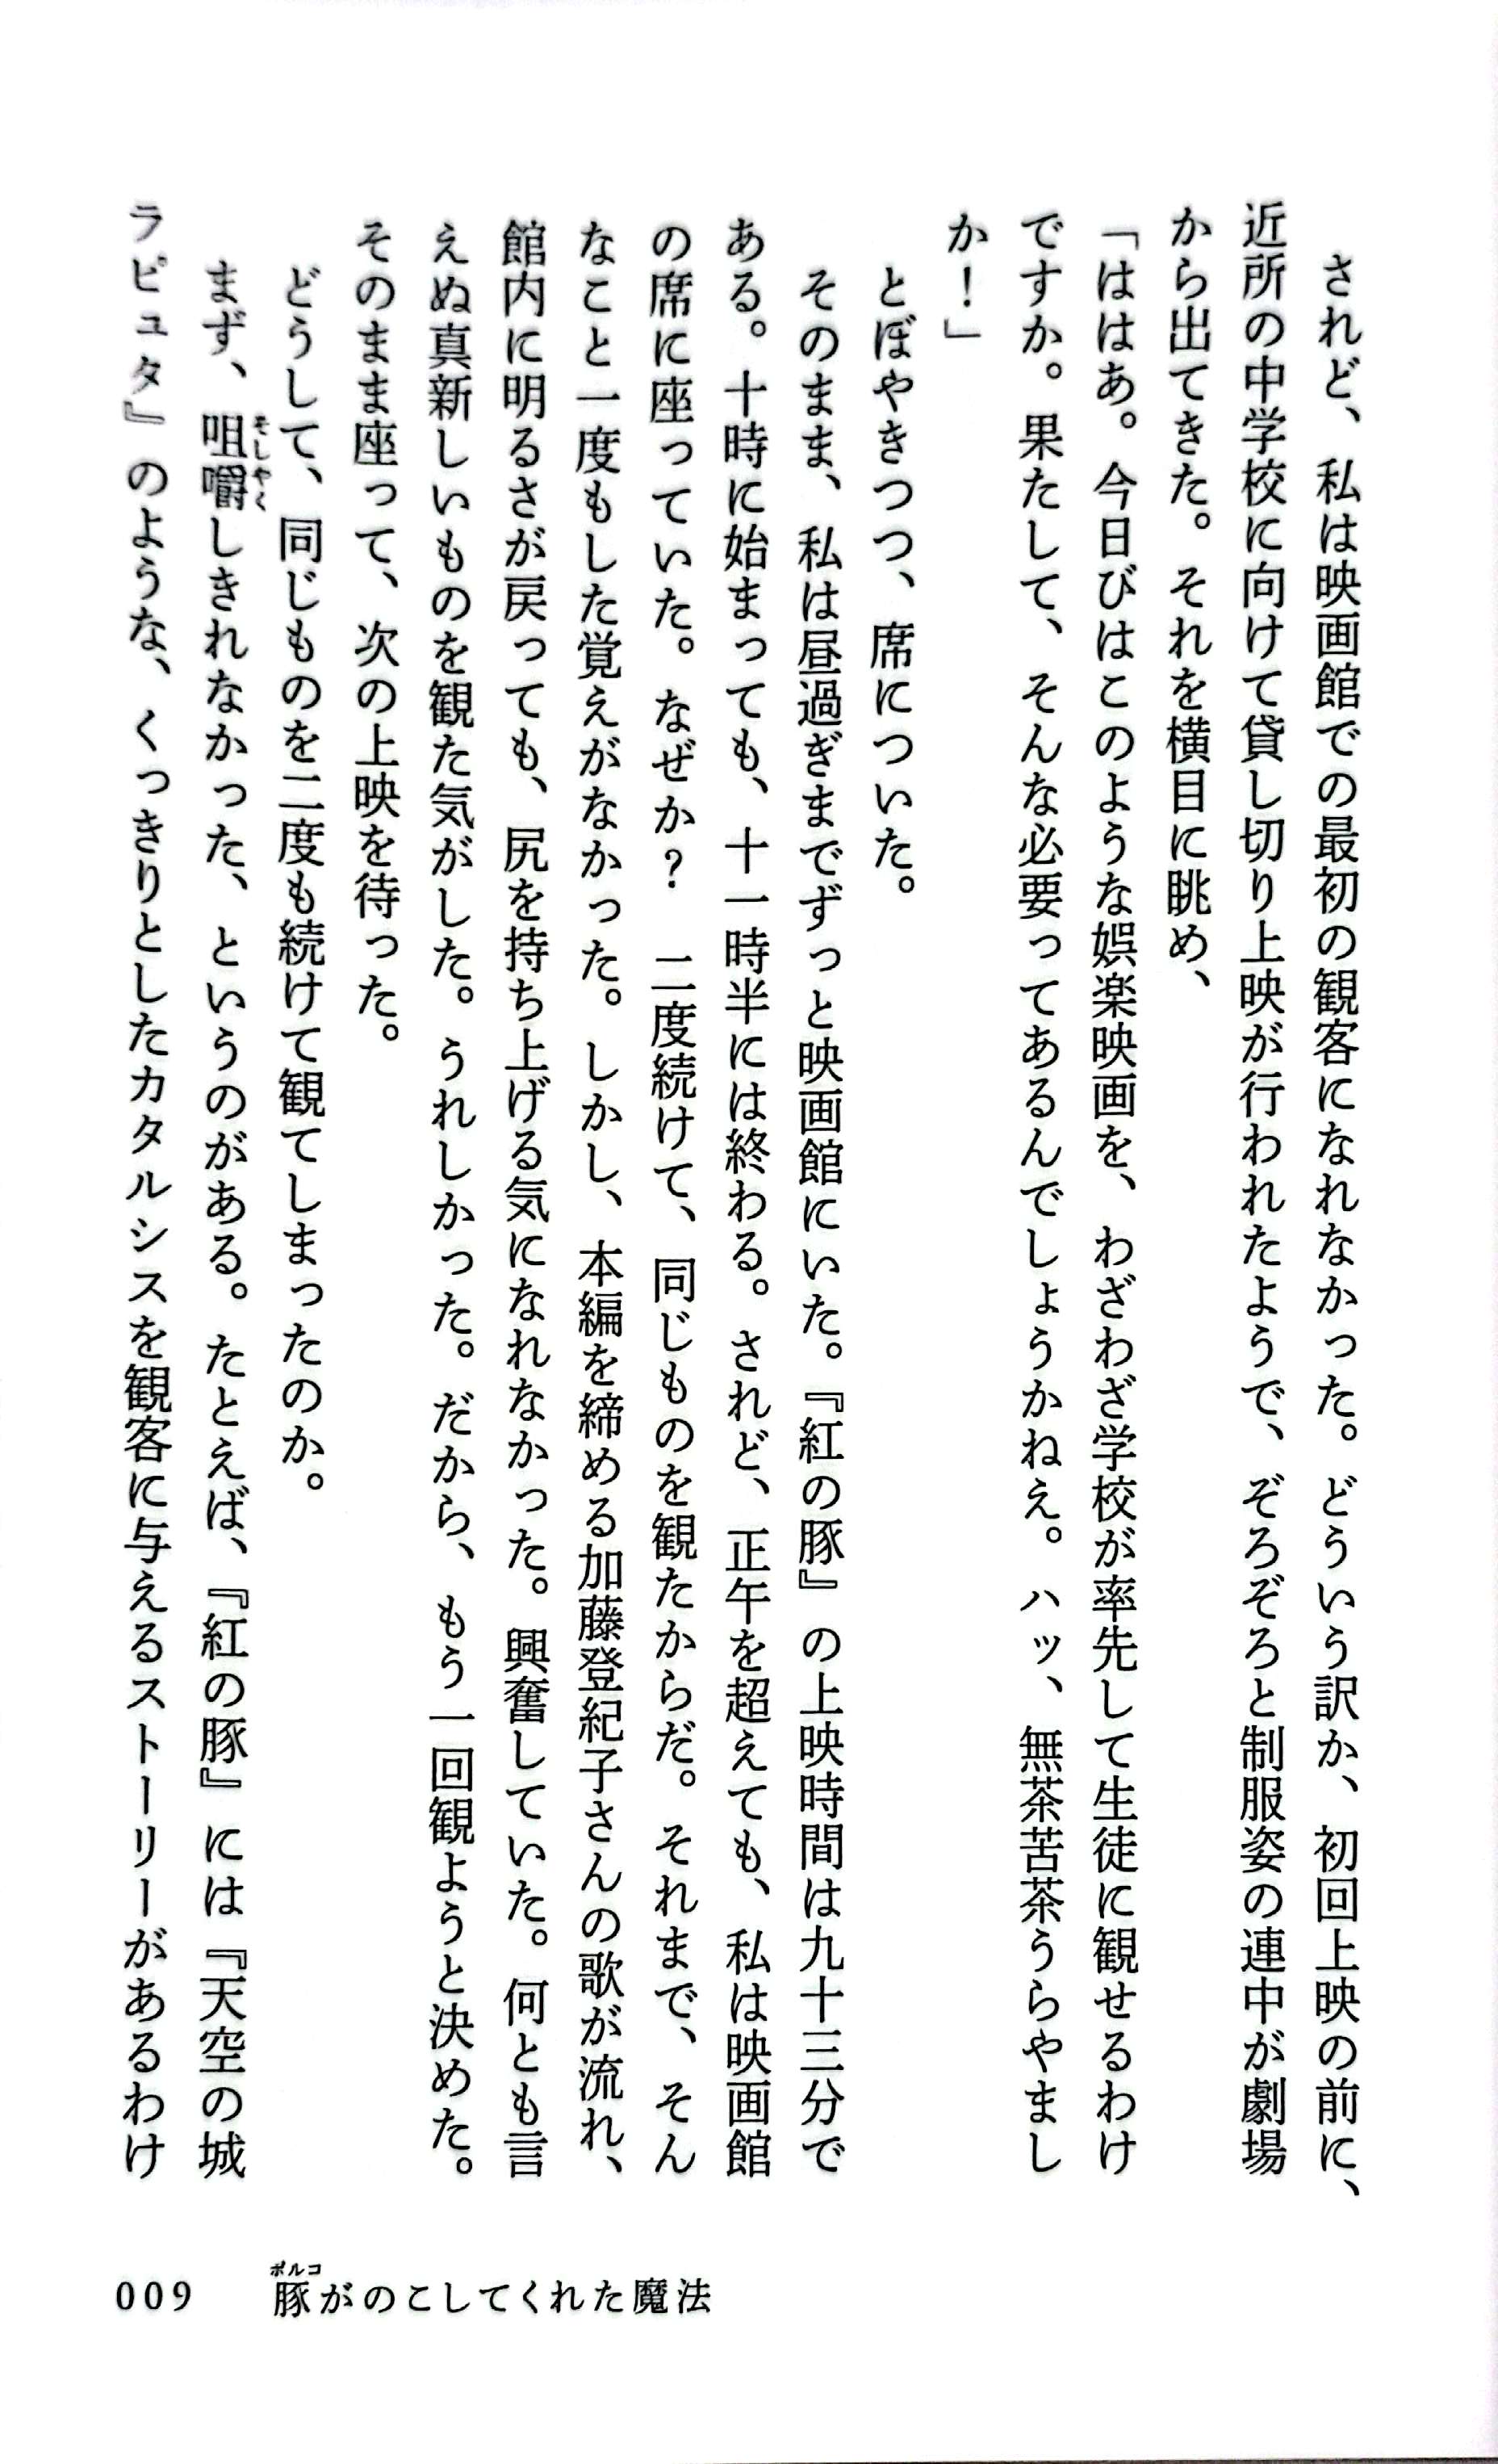 されど、私は映画館での最初の観客になれなかった。どういう訳か、初回上映の前に、
近所の中学校に向けて貸し切り上映が行われたようで、ぞろぞろと制服姿の連中が劇場
から出てきた。それを横目に眺め、
「ははあ。今日びはこのような娯楽映画を、わざわざ学校が率先して生徒に観せるわけ
ですか。果たして、そんな必要ってあるんでしょうかねえ。ハッ、無茶苦茶うらやまし
か！」
とぼやきつつ、席についた。
そのまま、私は昼過ぎまでずっと映画館にいた。『紅の豚』の上映時間は九十三分で
ある。十時に始まっても、十一時半には終わる。されど、正午を超えても、私は映画館
の席に座っていた。なぜか？　二度続けて、同じものを観たからだ。それまで、そん
なこと一度もした覚えがなかった。しかし、本編を締める加藤登紀子さんの歌が流れ、
館内に明るさが戻っても、尻を持ち上げる気になれなかった。興奮していた。何とも言
えぬ真新しいものを観た気がした。うれしかった。だから、もう一回観ようと決めた。
そのまま座って、次の上映を待った。
どうして、同じものを二度も続けて観てしまったのか。
まず、咀嚼しきれなかった、というのがある。たとえば、『紅の豚』には『天空の城
そしゃく
ラピュタ』のような、くっきりとしたカタルシスを観客に与えるストーリーがあるわけ
009
ポルコ
豚がのこしてくれた魔法